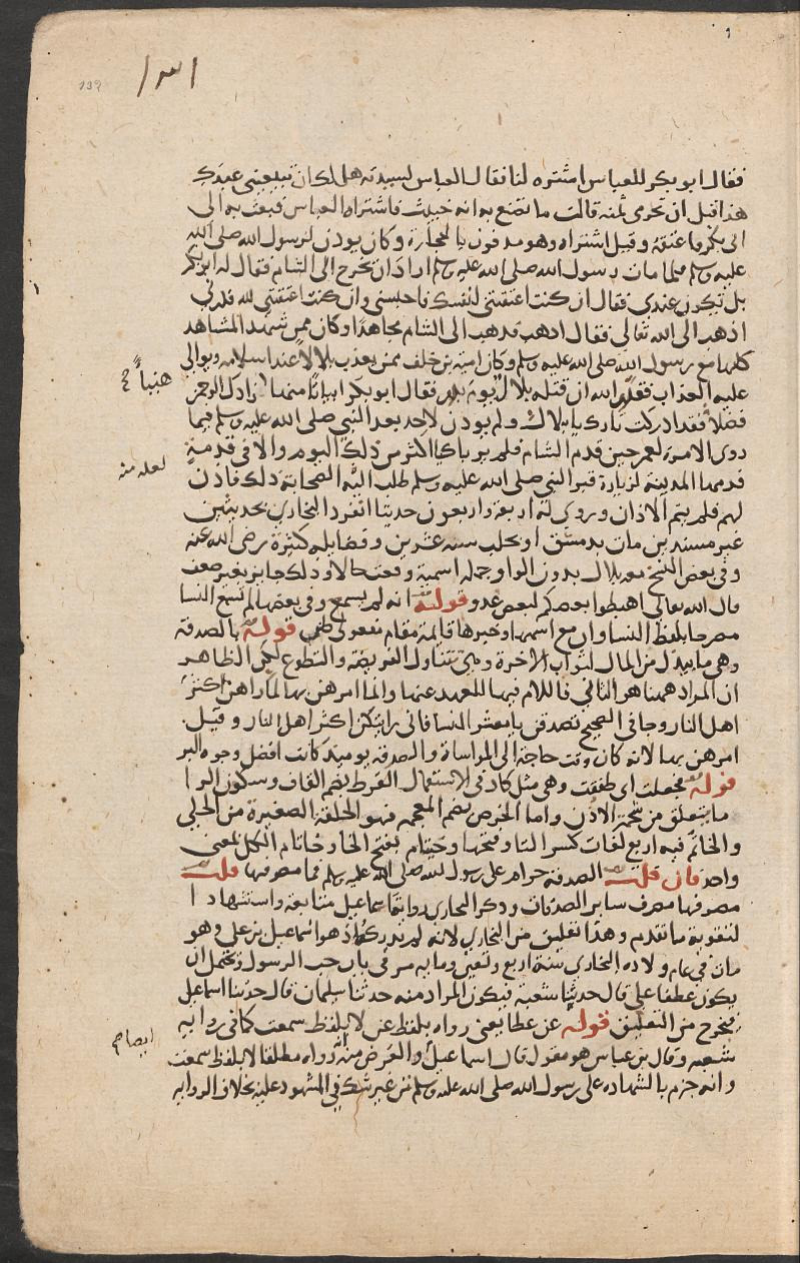 ١٣١
139
فقال ابو بكر للعباس اشتره لنا فقال العباس لسيدته هل لك ان تبيعيني عبدك
هذا قبل ان تحرمي ثمنه قالت ما تصنع به انه خبيث فاشتراه العباس فبعث به الى
ابي بكر فاعتقه وقيل اشتراه وهو مدفون بالحجارة وكان يوذن لرسول الله صلى الله
عليه وسلم فلما مات رسول الله صلى الله عليه وسلم اراد ان يخرج الى الشام فقال له ابو بكر
بل تكون عندي فقال ان كنت اعتقتني لنفسك فاحبسني وان كنت اعتقتني لله فذرني
اذهب الى الله تعالى فقال اذهب فذهب الى الشام مجاهدا وكان ممن شهد المشاهد
كلها مع رسول الله صلى الله عليه وسلم وكان امية بن خلف ممن يعذب بلالا عند اسلامه ويوالي
عليه العذاب فقدر الله ان قتله بلال يوم بدر فقال ابو بكر ابياتا منها زادك الرحمن
هنيا
فضلا فقد ادركت ثارك يا بلال ولم يوذن لاحد بعد النبي صلى الله عليه وسلم فيما
روى الا مرة لعمر حين قدم الشام فلم ير باكيا اكثر من ذلك اليوم والا في قدمة
لعله منه
قدمها المدينة لزيارة قبر النبي صلى الله عليه وسلم طلب اليه الصحابة ذلك فاذن
لهم فلم يتم الاذان وروى له اربعة واربعون حديثا انفرد البخاري بحديثين
غير مسندين مات بدمشق او بحلب سنه عشرين وفضايله كثيرة رضى الله عنه
وفي بعض النسخ معه بلال بدون الواو جملة اسمية وقعت حالا وذلك جايز بغير ضعف
قال الله تعالى اهبطوا بعضكم لبعض عدو قوله انه لم يسمع وفي بعضها لم يسمع النسا
مصرحا بلفظ النسا وان مع اسمها وخبرها قايمة مقام مفعولي ظن قوله بالصدقة
وهي ما يبذل من المال لثواب الاخرة وهي تتناول الفريضة والتطوع لكن الظاهر
ان المراد ههنا هو الثاني فاللام فيها للعهد عنها وانما امرهن بها لما راهن اكثر
اهل النار وجا في الصحيح تصدقن يا معشر النسا فاني رايتكن اكثر اهل النار وقيل
امرهن بها لانه كان وقت حاجة الى المواساة والصدقه يوميذ كانت افضل وجوه البر
قوله فجعلت اي طفقت وهي مثل كاد في الاستعمال القرط بضم القاف وسكون الرا
ما يتعلق من شحمة الاذن واما الخرص بضم المعجمه فهو الحلقة الصغيرة من الحلي
والخاتم فيه اربع لغات كسر التا وفتحها وخيتام بفتح الخا وخاتام الكل بمعنى
واحد فان قلت الصدقه حرام على رسول الله صلى الله عليه وسلم فما مصرفها قلت
مصرفها مصرف ساير الصدقات وذكر البخاري رواية اسماعيل متابعة واستشهادا
لتقوية ما تقدم وهذا تعليق من البخاري لانه لم يدركه اذ هو اسماعيل بن علي وهو
مات في عام ولاده البخاري سنة اربع وتسعين ومايه مر في باب حب الرسول ويحتمل ان
يكون عطفا على قال حدثنا شعبة فيكون المراد منه حدثنا سليمان قال حدثنا اسماعيل
فيخرج من التعليق قوله عن عطا يعني رواه بلفظ عن لا بلفظ سمعت كما في رواية
ايضا
شعبه وقال بن عباس هو مقول قال اسماعيل والغرض منه رواه مطلقا لا بلفظ سمعت
وانه جزم بالشهاده على رسول الله صلى الله عليه وسلم من غير شك في المشهود عليه بخلاف الروايه